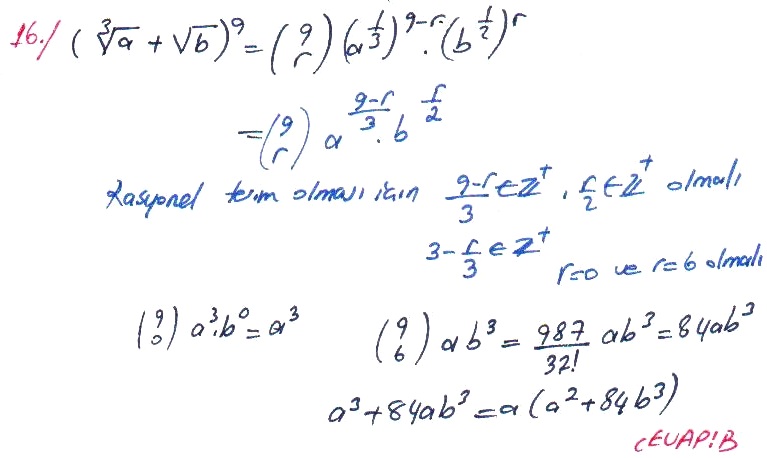 16./ (∛a + √b)⁹ = (9 r) (a^(1/3))^(9-r) . (b^(1/2))^r
= (9 r) a^((9-r)/3) . b^(r/2)
Rasyonel terim olması için (9-r)/3 ∈ Z⁺ , r/2 ∈ Z⁺ olmalı
3 - r/3 ∈ Z⁺
r=0 ve r=6 olmalı
(9 0) a³.b⁰ = a³
(9 6) ab³ = 987/32! ab³ = 84ab³
a³ + 84ab³ = a (a² + 84b³)
CEVAP!B